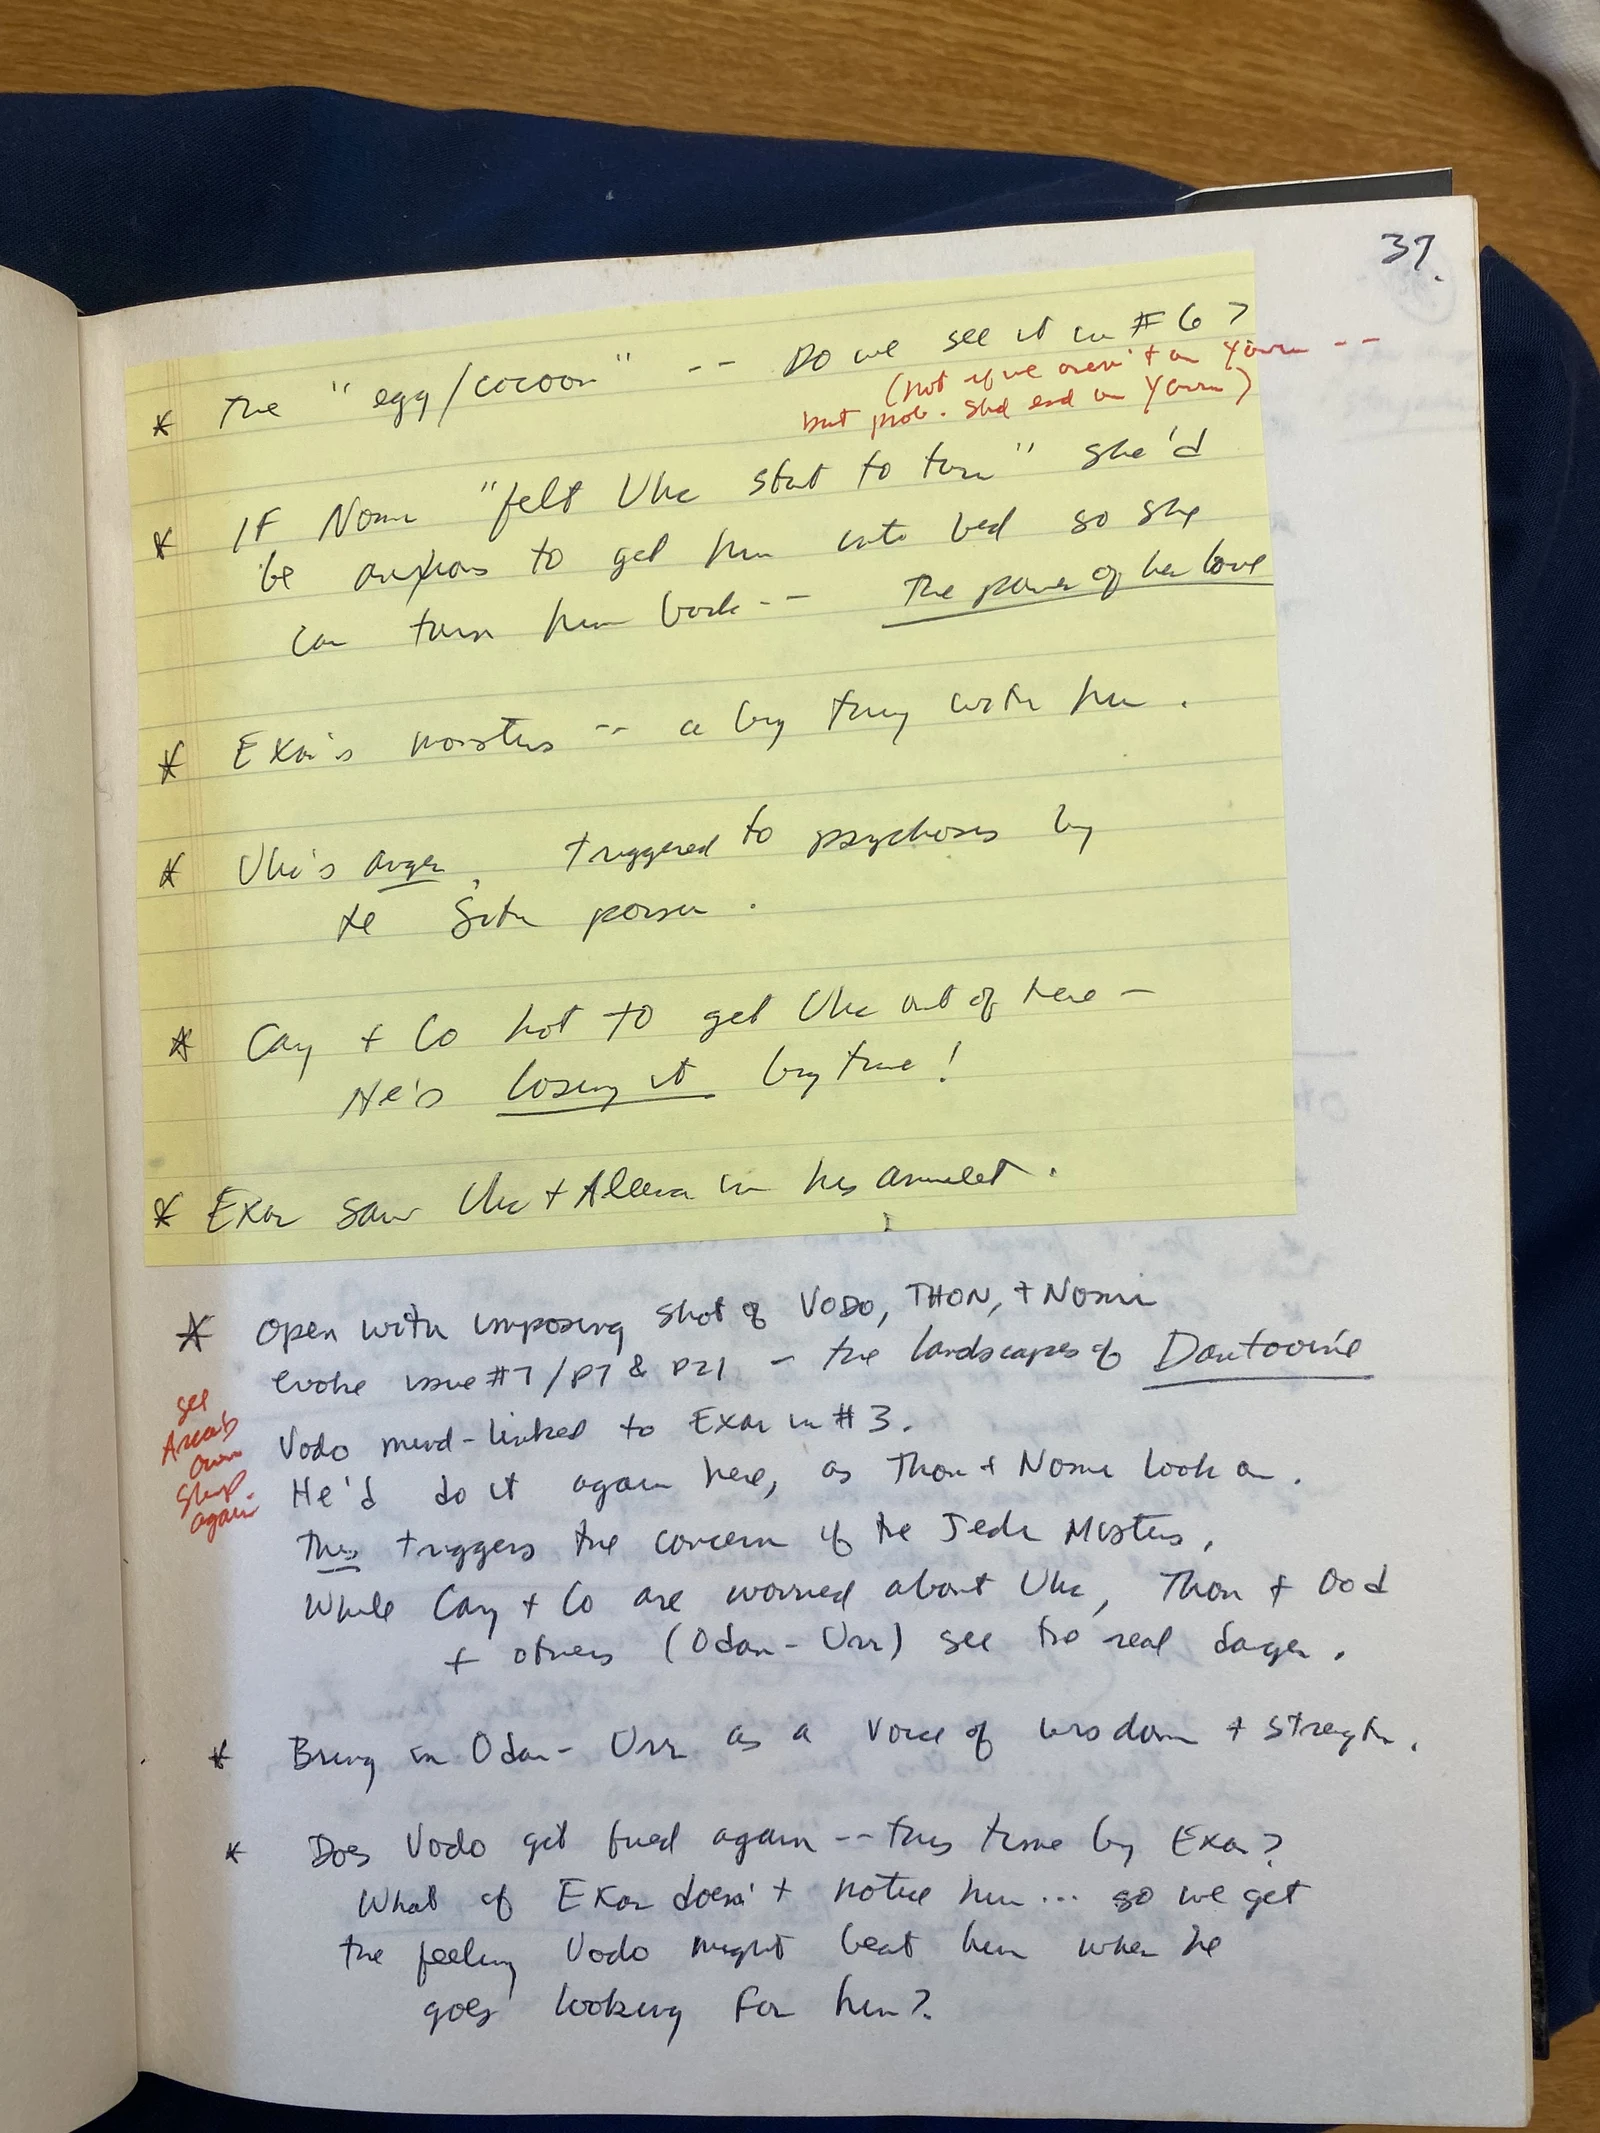 37.
* The "egg/cocoon" -- Do we see it in #6?
(not if we aren't on Yavin --
but prob. shd end on Yavin)
* IF Nomi "felt Ulic start to turn" she'd
be anxious to get him into bed so she
can turn him back -- The power of her love
* Exar's monsters -- a big thing with him.
* Ulic's anger, triggered to psychosis by
the Sith poison.
* Cay + Co hot to get Ulic out of here —
He's losing it big time!
* Exar saw Ulic + Aleema in his amulet.
* Open with imposing shot of VODO, THON, + Nomi
evoke issue #7/P7 & P21 – the landscapes of Dantooine
see
Arca's
own
ship
again
Vodo mind-linked to Exar in #3.
He'd do it again here, as Thon + Nomi look on.
This triggers the concern of the Jedi Masters.
While Cay + Co are worried about Ulic, Thon + Ood
+ others (Odan-Urr) see the real danger.
* Bring in Odan-Urr as a voice of wisdom + strength.
* Does Vodo get fried again -- this time by Exar?
What if Exar doesn't notice him... so we get
the feeling Vodo might beat him when he
goes looking for him?